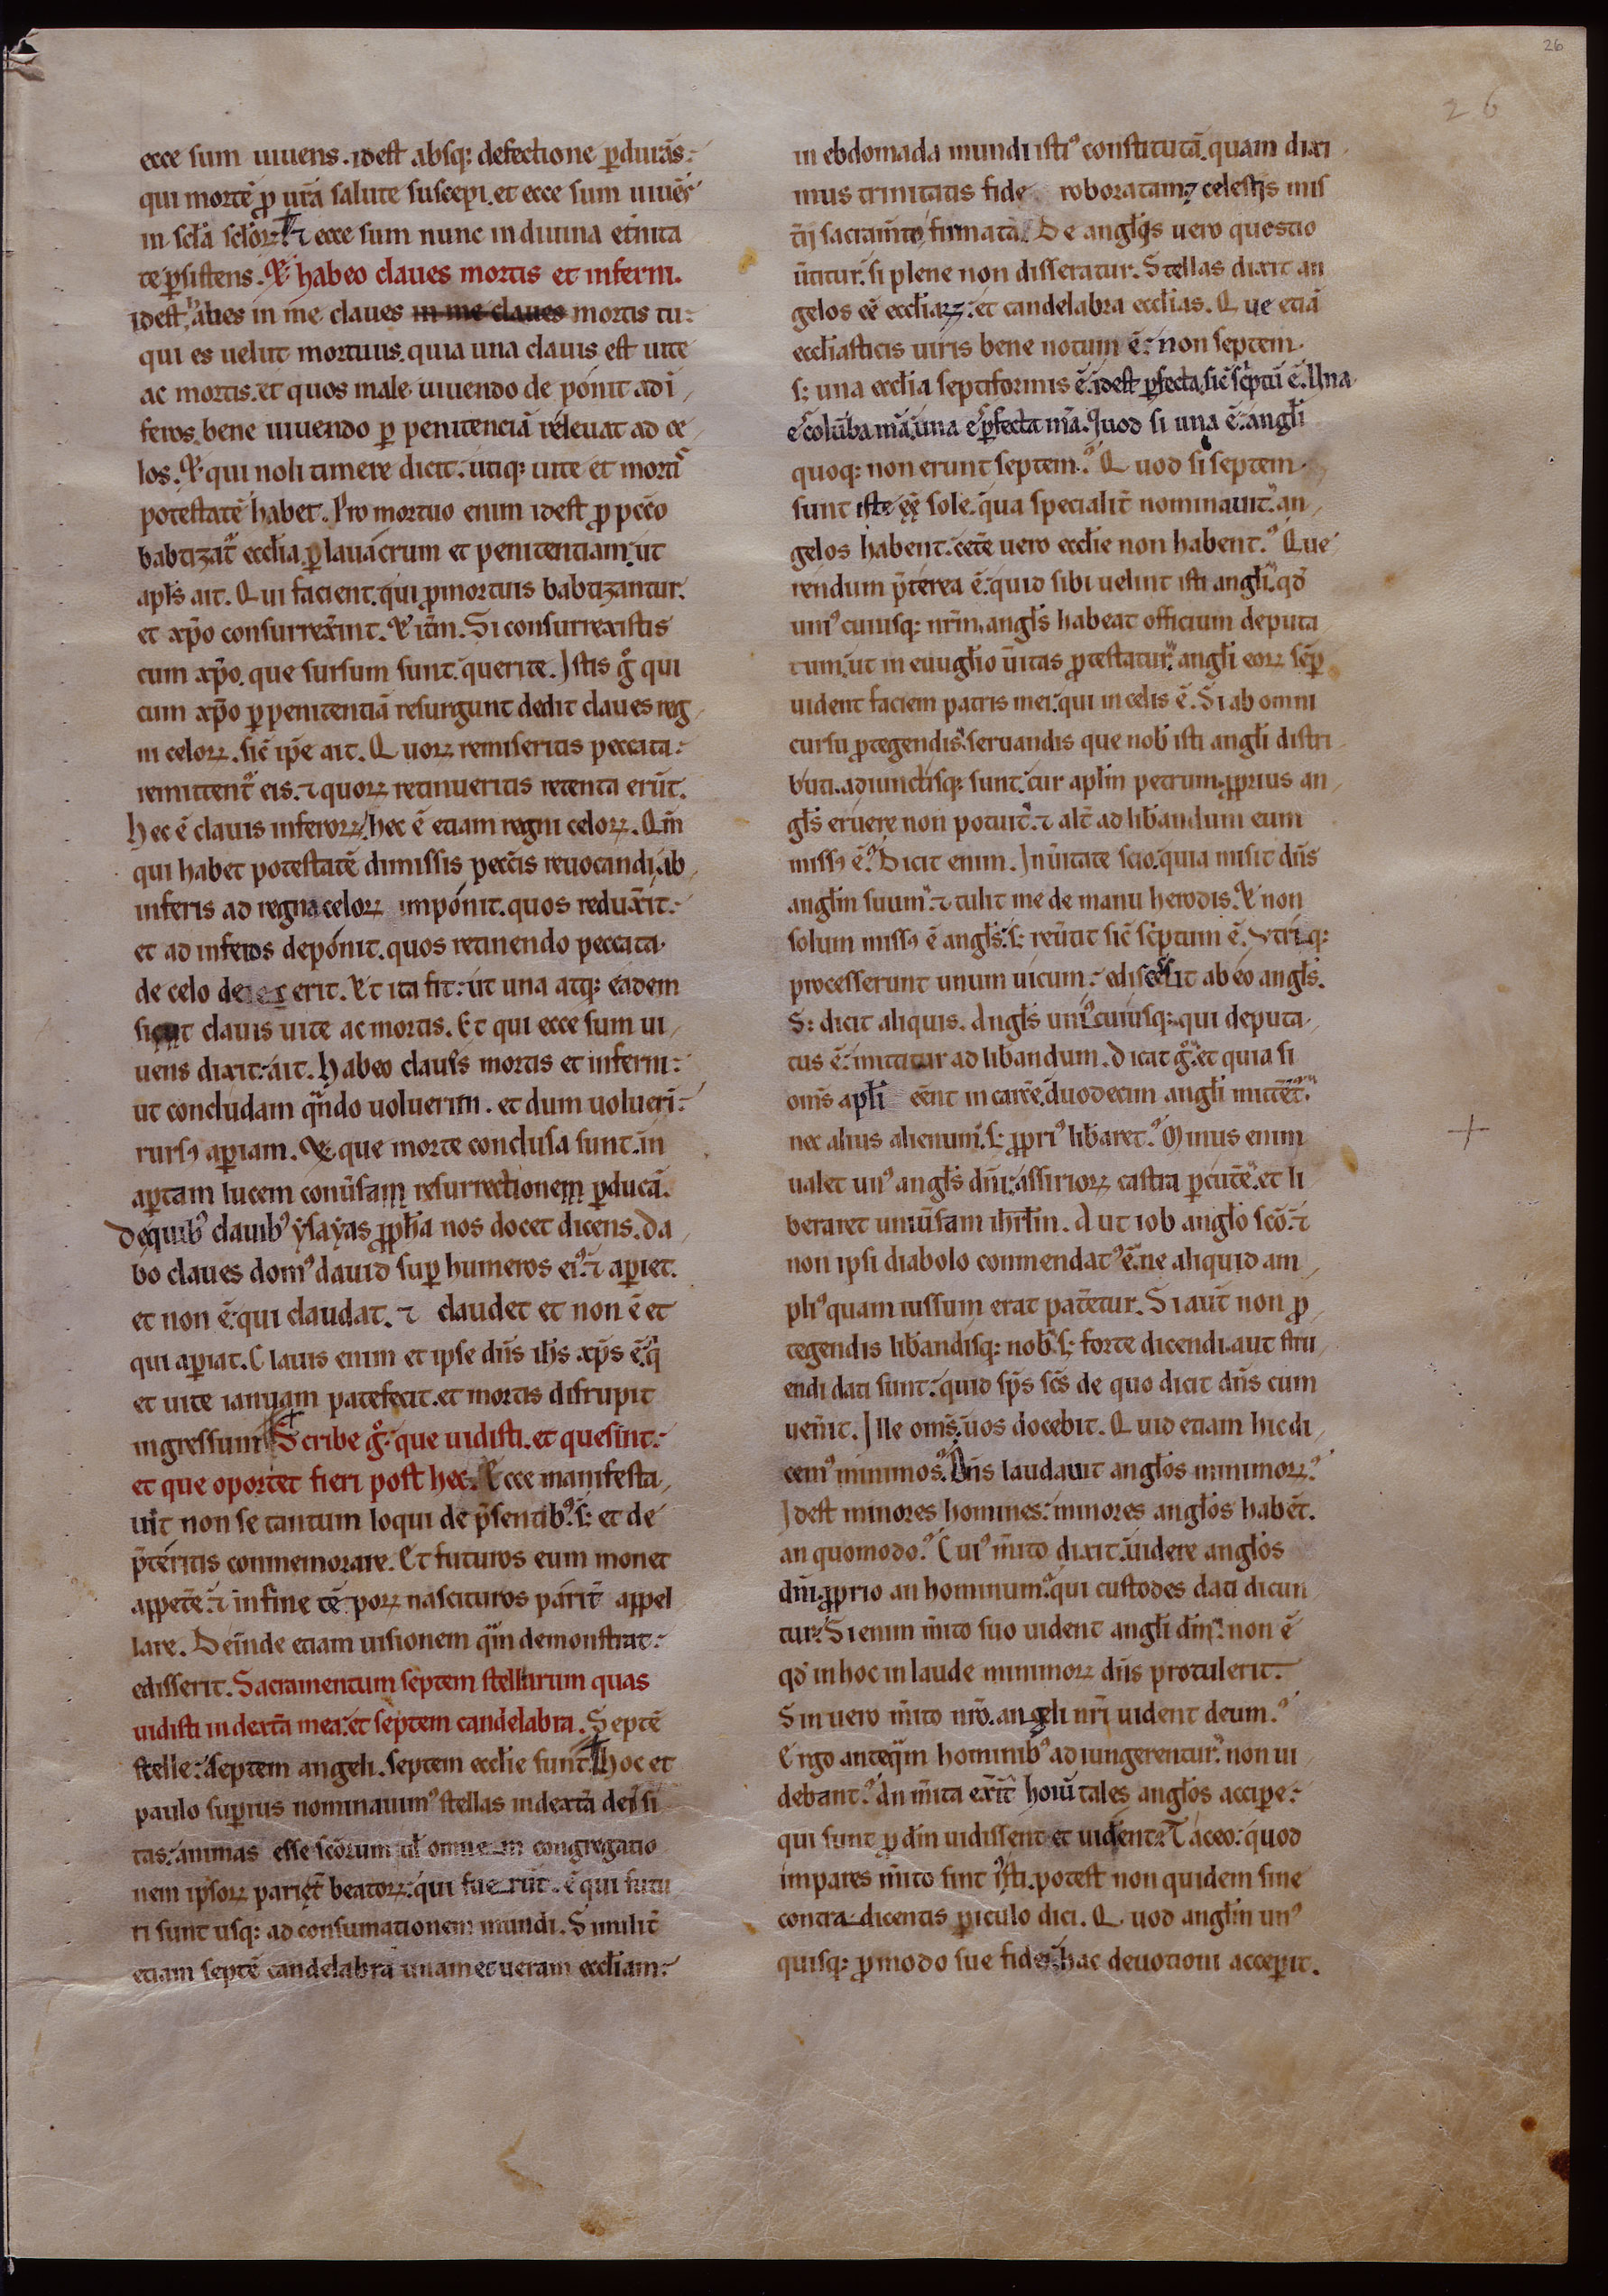 26
26
ecce sum uiuens. idest absq: defectione p̱durãs:
qui mortẽ p̱ ur̃a salute suscepi. et ecce sum uiuẽs
in scła scłor: ⁊ ecce sum nunc in diuina et̃nita
te p̱sistens. Et habeo claues mortis et inferni.
idest habes in me claues in me claues mortis tu:
qui es uelut mortuus. quia una clauis est uite
ac mortis. et quos male uiuendo de ponit ad ĩ
feros. bene uiuendo p̱ penitenciã releuat ad ce
los. Et qui noli timere dicit. utiq: uite et mortis
potestatẽ habet. Pro mortuo enim idest p̱ pcc̃o
babtizat̃ ecclia. p̱ lauacrum et penitentiam. ut
apłs ait. Qui facient. qui pmortuis babtizantur.
et xp̃o consurrex̃int. Et itm̃. Si consurrexistis
cum xp̃o. que sursum sunt. querite. Istis g̊ qui
cum xp̃o p̱ penitentiã resurgunt dedit claues reg
ni celorꝝ. sic̃ ip̃e ait. Quorꝝ remiseritis peccata:
remittent̃ eis. ⁊ quorꝝ retinueritis retenta erũt.
hec ẽ clauis inferorꝝ. hec ẽ etiam regni celorꝝ. Qm̃
qui habet potestatẽ dimissis pecc̃is reuocandi. ab
inferis ad regna celorꝝ imponit. quos redux̃it:
et ad inferos deponit. quos retinendo peccata
de celo erit. Et ita fit: ut una atq: eadem
sicut clauis uite ac mortis. Et qui ecce sum ui
uens dixit: ait. habeo claues mortis et inferni:
ut concludam qñdo uoluerim. et dum uoluerĩ:
rursꝰ ap̱iam. Et que morte conclusa sunt. in
ap̱tam lucem conũsam resurrectionem p̱ducã.
De quibꝰ clauibꝰ ysayas pp̃ha nos docet dicens. Da
bo claues domꝰ dauid sup̱ humeros eiꝰ. ⁊ ap̱iet.
et non ẽ: qui claudat. ⁊ claudet et non ẽ et
qui ap̱iat. Clauis enim et ipse dñs ihs xp̃s ẽ. q̃
et uite ianuam patefecit. et mortis disrupit
ingressum. Scribe g̊. que uidisti. et que sint:
et que oportet fieri post hec. Ecce manifesta
uit non se tantum loqui de p̃sentibꝰ. s: et de
p̃teritis conmemorare. Et futuros eum monet
appetẽ. ⁊ in fine tẽporꝝ nascituros parit̃ appel
lare. Deinde etiam uisionem qm̃ demonstrat:
edisserit. Sacramentum septem stellarum quas
uidisti in dext̃a mea: et septem candelabra. Septẽ
stelle: septem angeli. septem ecclie sunt. hoc et
paulo sup̱ius nominauimꝰ stellas in dext̃a dei si
tas: animas esse scõrum uł omnem congregatio
nem ipsorꝝ pariet̃ beatorꝝ: qui fuerũt. ẽ qui futu
ri sunt usq: ad consumationem mundi. Similit̃
etiam septẽ candelabra unam et ueram eccliam:
in ebdomada mundi istiꝰ constitutã. quam dixi
mus trinitatis fide roboratam; celestis mis
t̃ij sacram̃to firmatã. De angłis uero questio
ũtitur. si plene non disseratur. Stellas dixit an
gelos eẽ eccliarꝝ: et candelabra ecclias. Que etiã
eccliasticis uiris bene notum ẽ: non septem
s: una ecclia septiformis ẽ. idest p̱fecta. sic̃ sc̃ptũ ẽ. Una
ẽ colũba mã. una ẽ p̱fecta mã. Quod si una ẽ: angłi
quoq: non erunt septem. Quod si septem
sunt iste eẽ sole. qua specialit̃ nominauit: an
gelos habent. cet̃e uero ecclie non habent. Que
rendum p̃terea ẽ. quid sibi uelint isti angłi. qđ
uniꝰ cuiusq: nr̃m. angłs habeat officium deputa
tum. ut in euuglio ũitas p̱testatur. angłi eorꝝ sẽp̱
uident faciem patris mei. qui in celis ẽ. Si ab omni
cursu ptegendis. seruandis que nob̃ isti angłi distri
buti. adiunctisq: sunt. cur apłm petrum. pprius an
głs eruere non potuit. ⁊ alt̃ ad lib̃andum eum
missꝰ ẽ. Dicit enim. In ũitate scio. quia misit dñs
angłm suum. ⁊ tulit me de manu herodis. Et non
solum missꝰ ẽ angłs. s: reũtit sic̃ sc̃ptum ẽ.
processerunt unum uicum: ediscessit ab eo angłs.
S: dicit aliquis. Angłs uniꝰcuiusq: qui deputa
tus ẽ: mittitur ad lib̃andum. Dicat g̊. et quia si
oms̃ apłi eẽnt in carc̃e. duodecim angłi mittẽt.
nec alius alienum. s: ppriꝰ lib̃aret. Minus enim
ualet unꝰ angłs dñi. assiriorꝝ castra p̱cutẽ. et li
beraret uniũsam ihrłm. Aut iob angło scõ. ⁊
non ipsi diabolo conmendatꝰ ẽ. ne aliquid am
pliꝰ quam iussum erat pat̃etur. Si aut̃ non p
tegendis lib̃andisq: nob̃. s: forte dicendi. aut stru
endi dati sunt. quid sp̃s sc̃s de quo dicit dñs cum
ueñit. Ille oms̃. uos docebit. Quid etiam hic di
cemꝰ minimos. Dñs laudauit angłos minimorꝝ.
Idest minores homines. minores angłos habẽt.
an quomodo. Cuiꝰ m̃ito dixit. uidere angłos
dñi. pprio an hominum. qui custodes dati dicun
tur. Si enim m̃ito suo uident angłi dñm. non ẽ
qđ in hoc in laude minimorꝝ dñs protulerit.
Sin uero m̃ito nr̃o. angeli nr̃i uident deum.
Ergo anteqm̃ hominibꝰ adiungerentur. non ui
debant. An m̃ita exit̃ hoiũ tales angłos accipe:
qui sunt p dñm uidissent et uident. Taceo: quod
impares m̃ito sint isti. potest non quidem sine
contradicentis p̱iculo dici. Quod angłm unꝰ
quisq: pmodo sue fidei. hac deuotioni accep̱it.